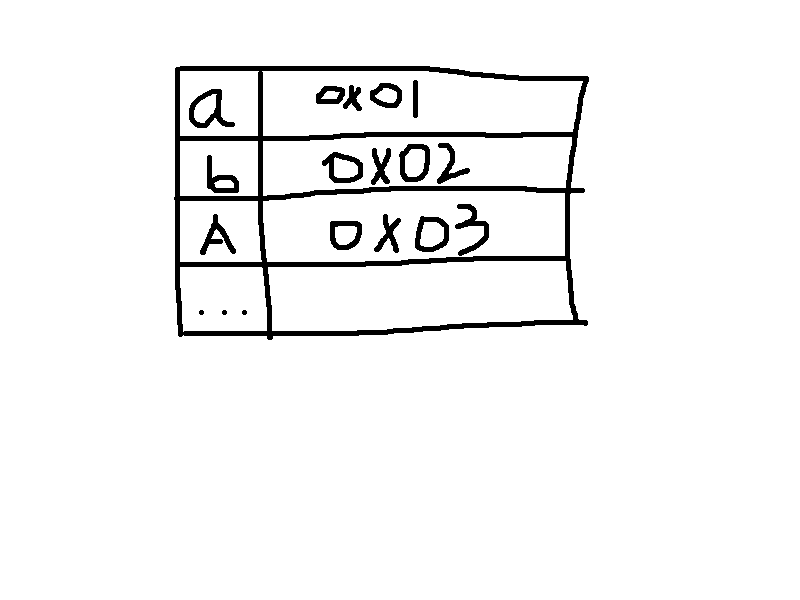 a 0x01
b 0x02
A 0x03
...